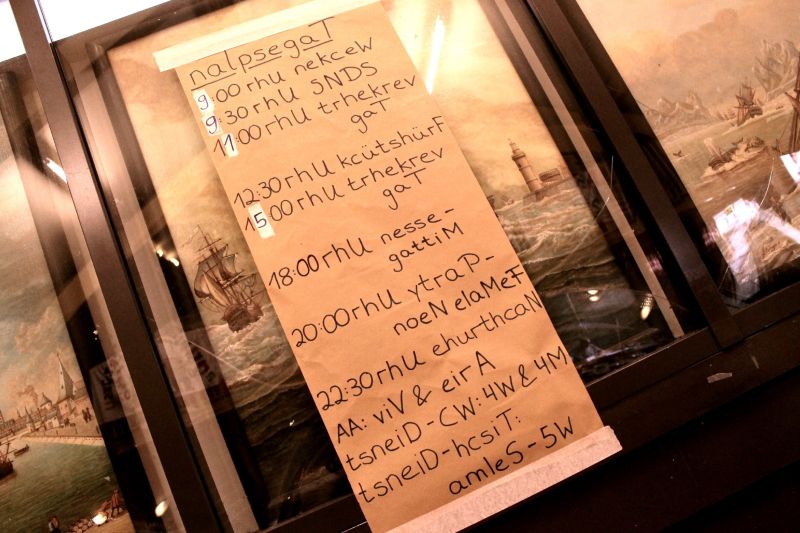 nalpsegaT
9:00 rhU nekceW
9:30 rhU SNDS
11:00 rhU trhekrev
gaT
12:30 rhU kcütshürF
15:00 rhU trhekrev
gaT
18:00 rhU nesse-
gattiM
20:00 rhU ytraP-
noeN elaMeF
22:30 rhU ehurthcaN
AA: viV & eirA
tsneiD-CW: 4W & 4M
tsneiD-hcsiT:
amleS - 5W